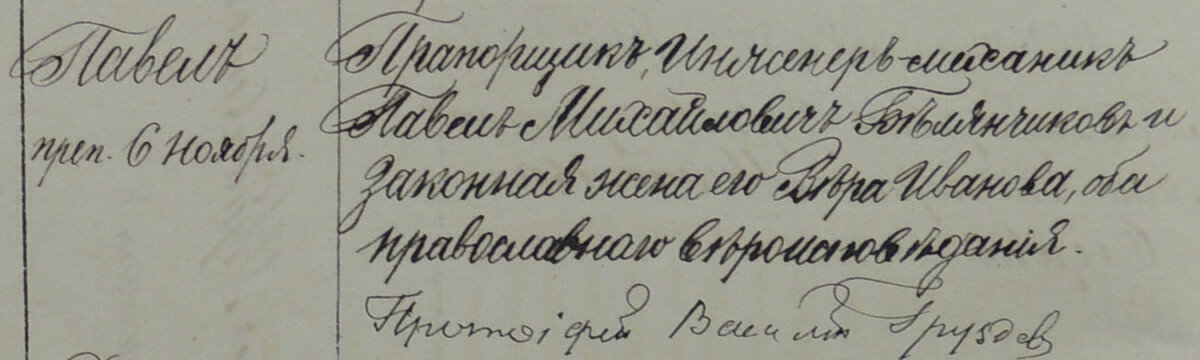 Павелъ
преп. 6 ноября.
Прапорщикъ, Инженеръ-механикъ
Павелъ Михайловичъ Бѣлянчиковъ и
законная жена его Вѣра Иванова, оба
православнаго вѣроисповѣданія.
Протоіерей Василій Груздев